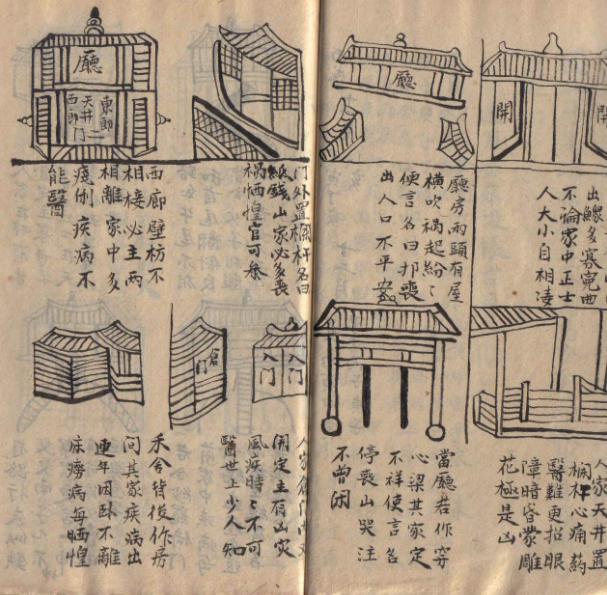 開
開
出鰥多寡寃曲
不論家中正士
人大小自相凌
廳
廳房兩頭有屋
橫吹禍起紛〻
便言名曰扛喪
出人口不平安
人家天井置
欄杆心痛药
醫難更招眼
障暗昏蒙雕
花極是山
當廳若作穿
心梁其家定
不祥使言名
停喪山哭注
不曾闲
門外置欄杆名曰
紙錢山家必多喪
禍恓惶官可叅
廳
東郎
天井二
西郎门
西廊壁枋不
相接必主兩
相離家中多
疾病不
能醫
入门
入门
倉门
人家倉門
開定主有山灾
風疾時〻不可
醫世上少人知
禾舍皆後作房
间其家疾病出
連年因卧不離
床癆病每恓惶